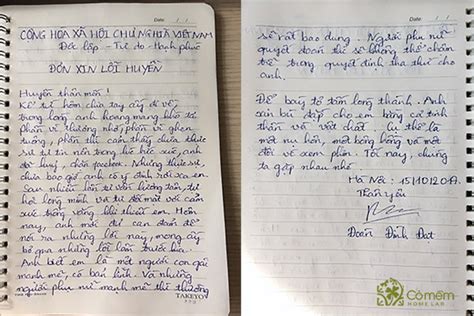 Date: / /
CỘNG HOÀ XÃ HỘI CHỦ NGHĨA VIỆT NAM
Độc lập - Tự do - Hạnh phúc
ĐƠN XIN LỖI HUYỀN
Huyền thân mến!
Kể từ hôm chia tay ấy đi về,
trong lòng anh hoang mang khó tả
phần vì thương nhớ, phần vì ghen
tuông, phần thì cảm thấy chưa thực
sự tự tin nên trong lúc bức xúc anh
đã huỷ chơi facebook. Nhưng thực sự,
chưa bao giờ anh có ý định rời xa em.
Sau nhiều lần tự vấn lương tâm, tự
hỏi lòng mình và tự đối mặt với cảm
xúc trống vắng khi thiếu em. Hôm
nay, anh mới đủ can đảm để
nói ra những lời này, mong em
bỏ qua những lỗi lầm trước kia.
Anh biết em là một người con gái
mạnh mẽ, có bản lĩnh. Và những
người phụ nữ mạnh mẽ thì thường
TAKEYO
Date: / /
sẽ rất bao dung. Người phụ nữ
quyết đoán thì sẽ không thể chậm
trễ trong quyết định tha thứ cho
anh.
Để bày tỏ tấm lòng thành. Anh
xin bù đắp cho em bằng cả tinh
thần và vật chất. Cụ thể là
một nụ hôn, một bông hồng và một
đôi vé xem phim. Tối nay, chúng
ta gặp nhau nhé.
Hà Nội: 15/10/2017
Thân yêu
Đoàn Đình Đạt
Cỏ mềm
HOME LAB